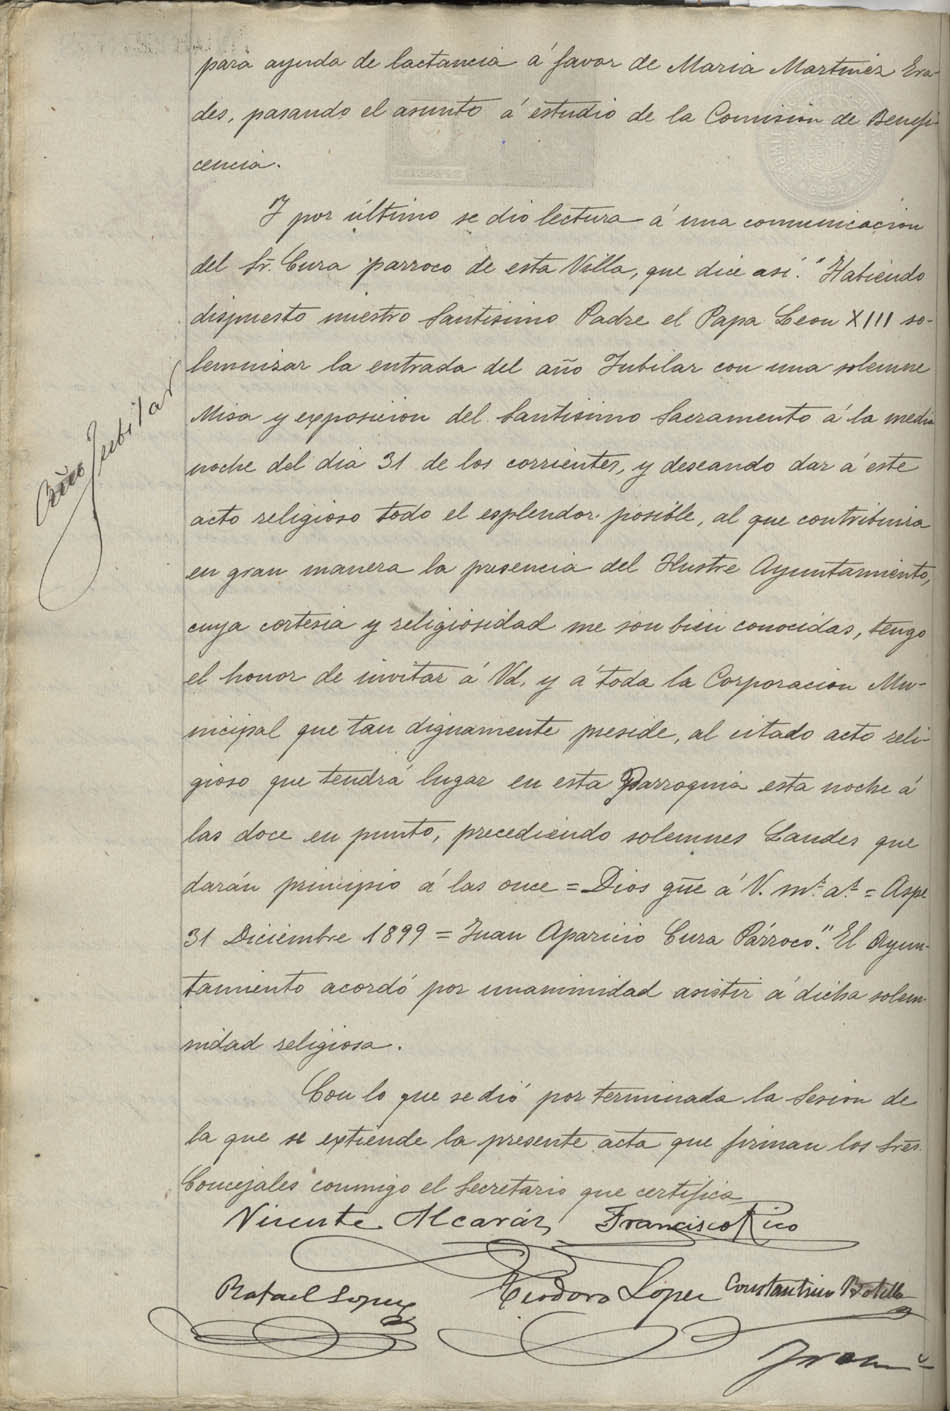 para ayuda de lactancia á favor de Maria Martinez Era-
des, pasando el asunto á estudio de la Comision de Benefi-
cencia.
Y por último se dio lectura á una comunicacion
del Sr. Cura párroco de esta Villa, que dice así: "Habiendo
dispuesto nuestro Santisimo Padre el Papa Leon XIII so-
lemnizar la entrada del año Jubilar con una solemne
Misa y exposicion del Santisimo Sacramento á la media
noche del dia 31 de los corrientes, y deseando dar á este
acto religioso todo el esplendor posible, al que contribuiria
en gran manera la presencia del Ilustre Ayuntamiento,
cuya cortesia y religiosidad me son bien conocidas, tengo
el honor de invitar á Vd, y á toda la Corporacion Mu-
nicipal que tan dignamente preside, al citado acto reli-
gioso que tendrá lugar en esta Parroquia esta noche á
las doce en punto, precediendo solemnes Laudes que
darán principio á las once = Dios gũe á V. m.ˢ a.ˢ = Aspe
31 Diciembre 1899 = Juan Aparicio Cura Párroco." El Ayun-
tamiento acordó por unanimidad asistir á dicha solem-
nidad religiosa.
Con lo que se dió por terminada la Sesion de
la que se extiende la presente acta que firman los Sres.
Concejales conmigo el Secretario que certifica
Año Jubilar
Vicente Alcaráz Francisco Rico
Rafael Lopez Teodoro López Constantino Botella